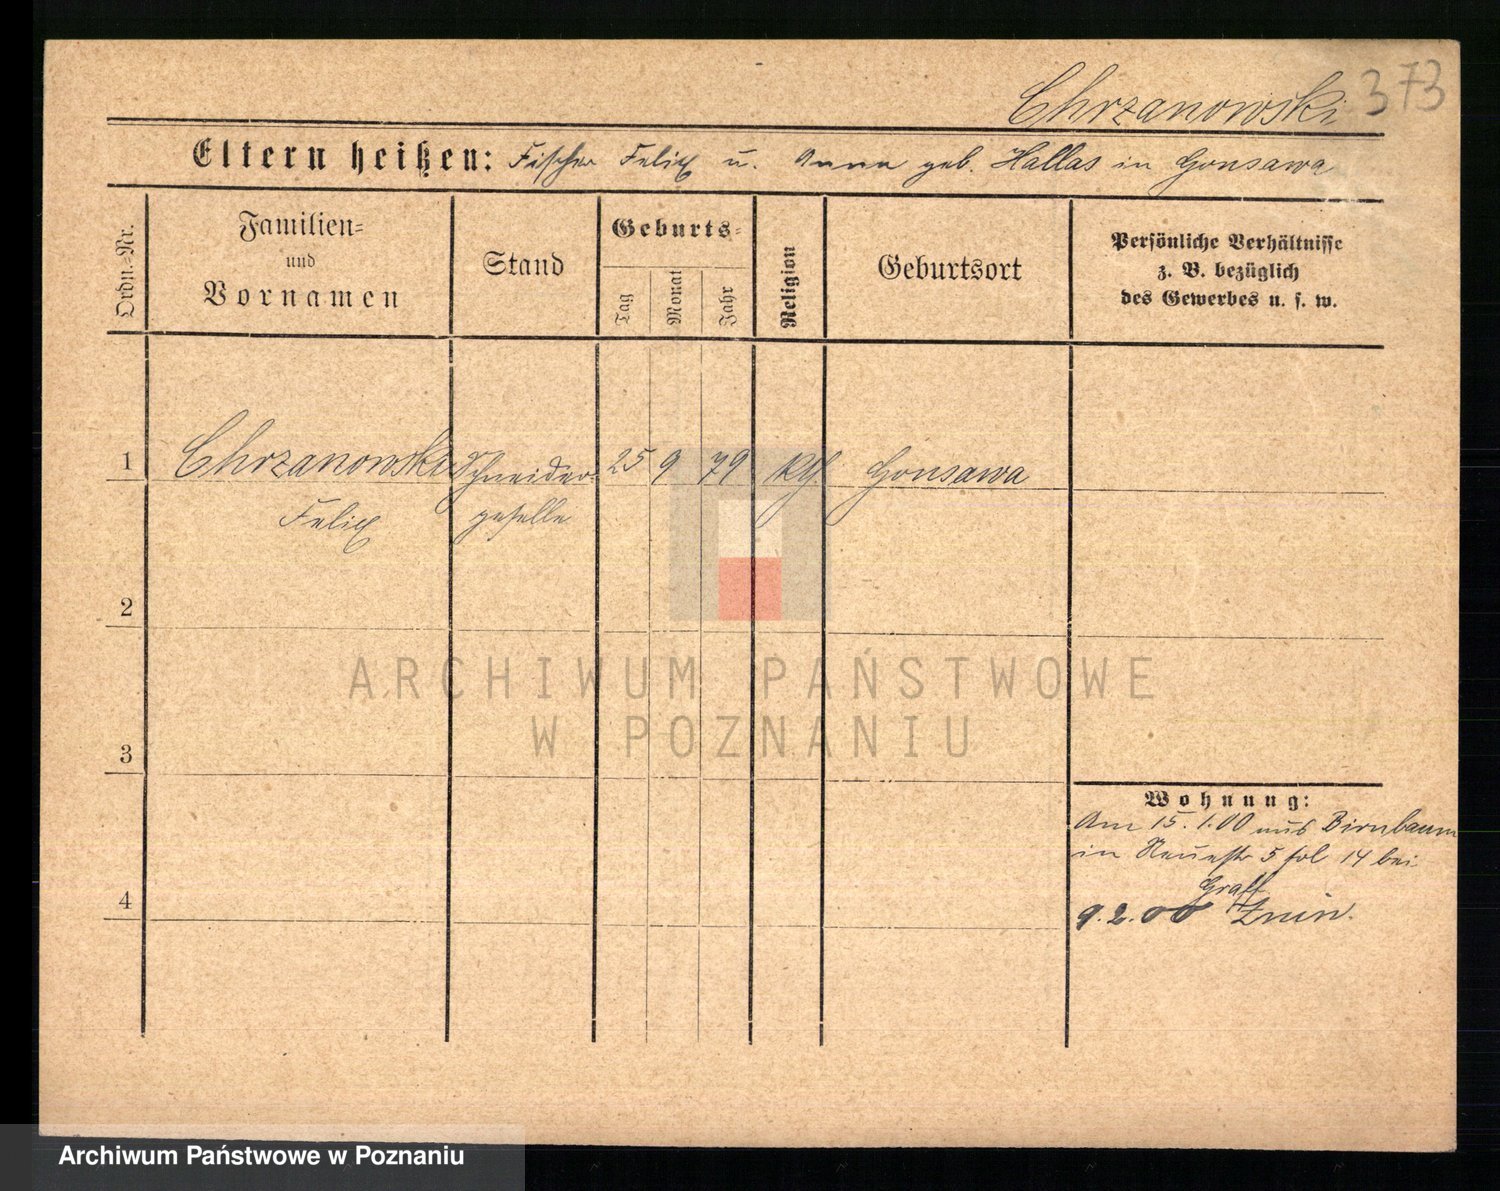 Chrzanowski 373
Eltern heißen: Fischer Felix u. Anna geb. Hallas in Gonsawa
Ordn.-Nr.
Familien-
und
Vornamen
Stand
Geburts-
Tag
Monat
Jahr
Religion
Geburtsort
Persönliche Verhältnisse
z. B. bezüglich
des Gewerbes u. s. w.
1 Chrzanowski Schneider- 25 9 79 Kth. Gonsawa
Felix geselle
2
3
4
ARCHIWUM PAŃSTWOWE
W POZNANIU
Wohnung:
Am 15.1.00 aus Birnbaum
in Neuestr 5 fol 14 bei
Graff
9.2.00 Znin.
Archiwum Państwowe w Poznaniu